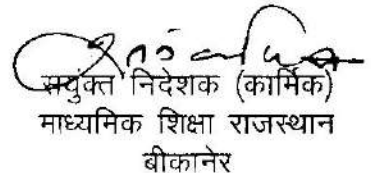 सयुंक्त निदेशक (कार्मिक)
माध्यमिक शिक्षा राजस्थान
बीकानेर